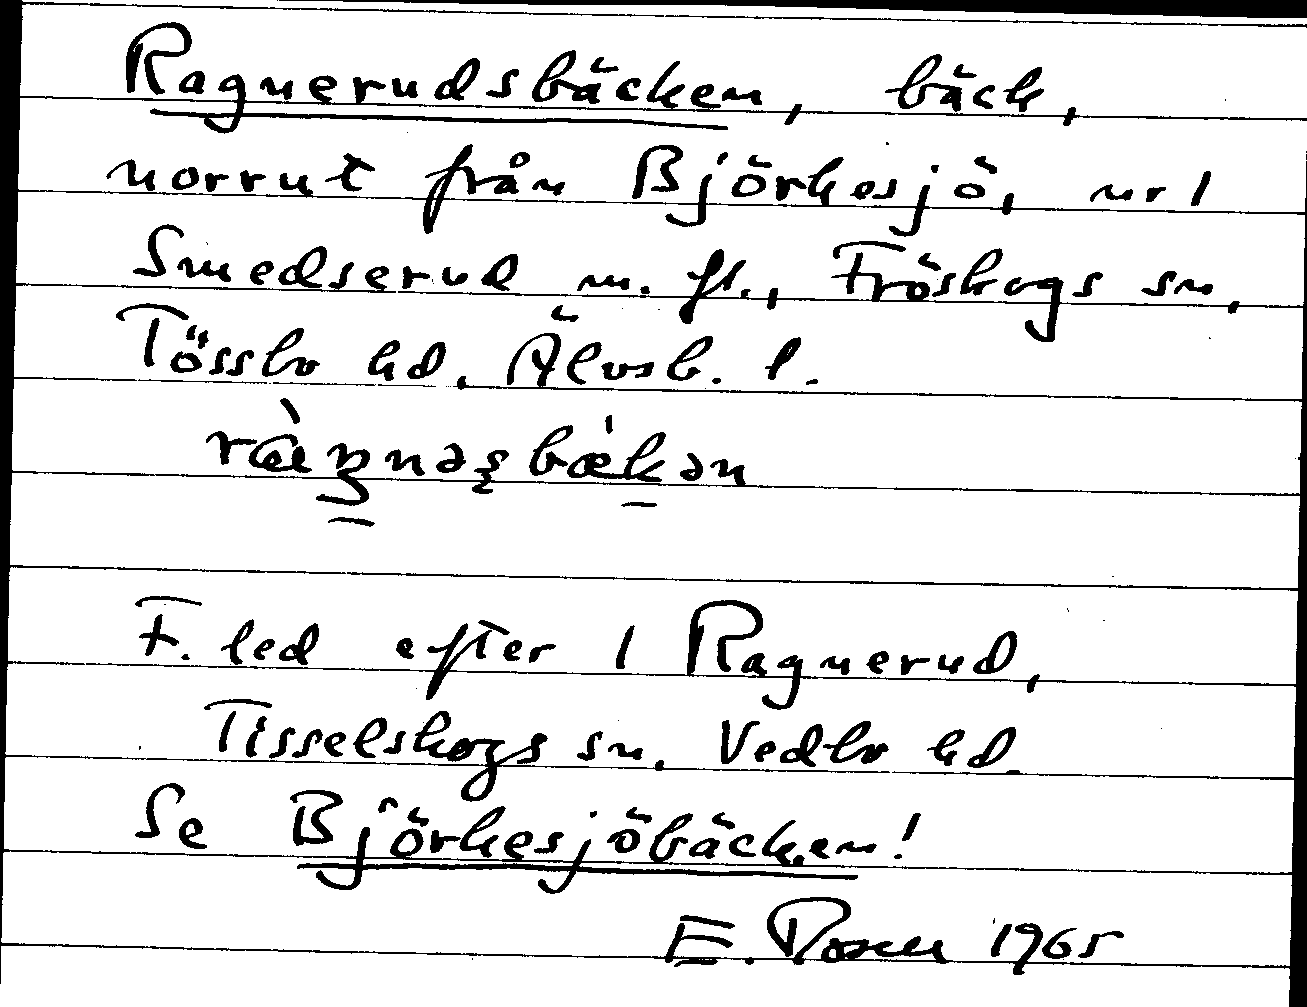 Ragnerudsbäcken, bäck,
norrut från Björkesjö, nr 1
Smedserud m. fl., Fröskogs sn,
Tössbo hd, Älvsb. l.
F. led efter 1 Ragnerud,
Tisselskogs sn, Vedbo hd.
Se Björkesjöbäcken!
E. Rosen 1965